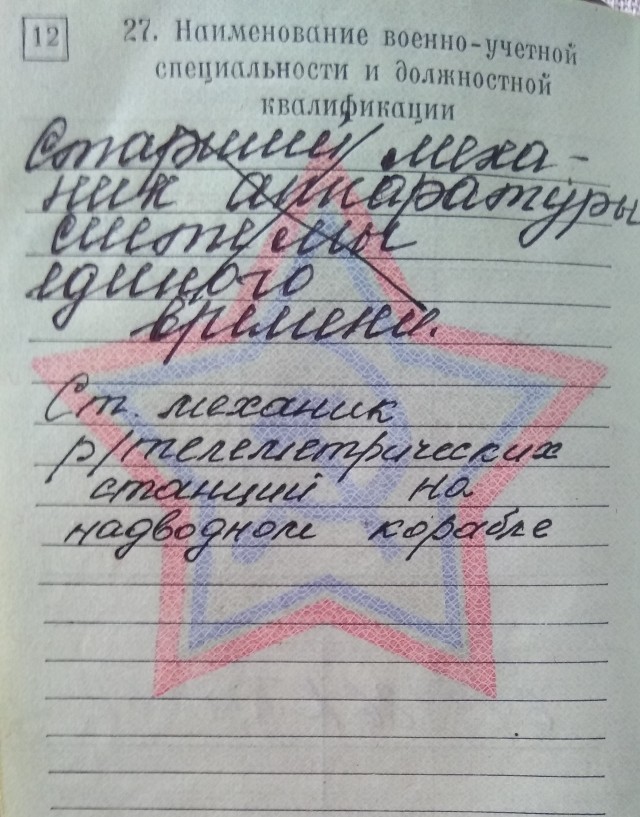 12
27. Наименование военно-учетной
специальности и должностной
квалификации
Старший меха-
ник аппаратуры
системы
единого
времени.
Ст. механик
р/телеметрических
станций на
надводном корабле